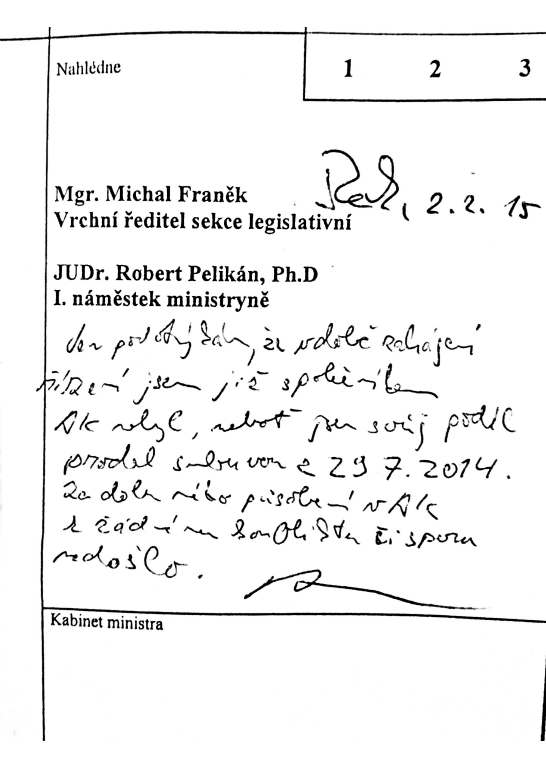 Nahlédne
1 2 3
Mgr. Michal Franěk
Vrchní ředitel sekce legislativní
2.2. 15
JUDr. Robert Pelikán, Ph.D
I. náměstek ministryně
Jen podotýkám, že v době zahájení
řízení jsem již společníkem
AK nebyl, neboť jsem svůj podíl
prodal smlouvou z 29 7. 2014.
Za dobu mého působení v AK
k žádnému konfliktu či sporu
nedošlo.
Kabinet ministra